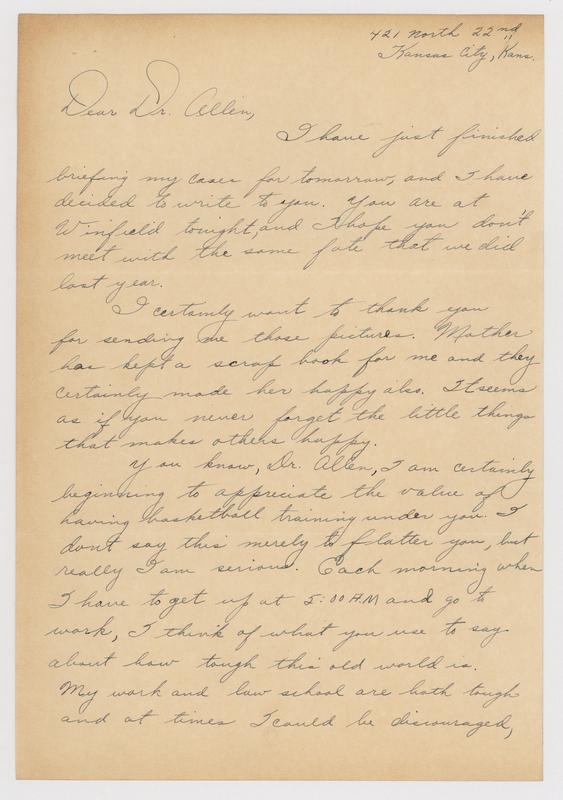 421 North 22nd
Kansas City, Kans.
Dear Dr. Allen,
I have just finished
briefing my cases for tomorrow, and I have
decided to write to you. You are at
Winfield tonight, and I hope you don't
meet with the same fate that we did
last year.
I certainly want to thank you
for sending me those pictures. Mother
has kept a scrap book for me and they
certainly made her happy also. It seems
as if you never forget the little things
that makes others happy.
You know, Dr. Allen, I am certainly
beginning to appreciate the value of
having basketball training under you. I
don't say this merely to flatter you, but
really I am serious. Each morning when
I have to get up at 5:00 A.M and go to
work, I think of what you use to say
about how tough this old world is.
My work and law school are both tough
and at times I could be discouraged,